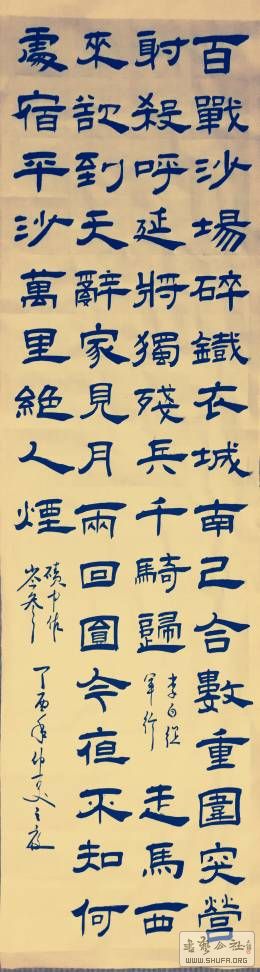 百戰沙場碎鐵衣城南已合數重圍突營
射殺呼延將獨殘兵千騎歸
李白從
軍行
走馬西
來欲到天辭家見月兩回圓今夜不知何
處宿平沙萬里絕人煙
磧中作
岑參
丁酉年仲夏之夜
书艺公社
WWW.SHUFA.ORG